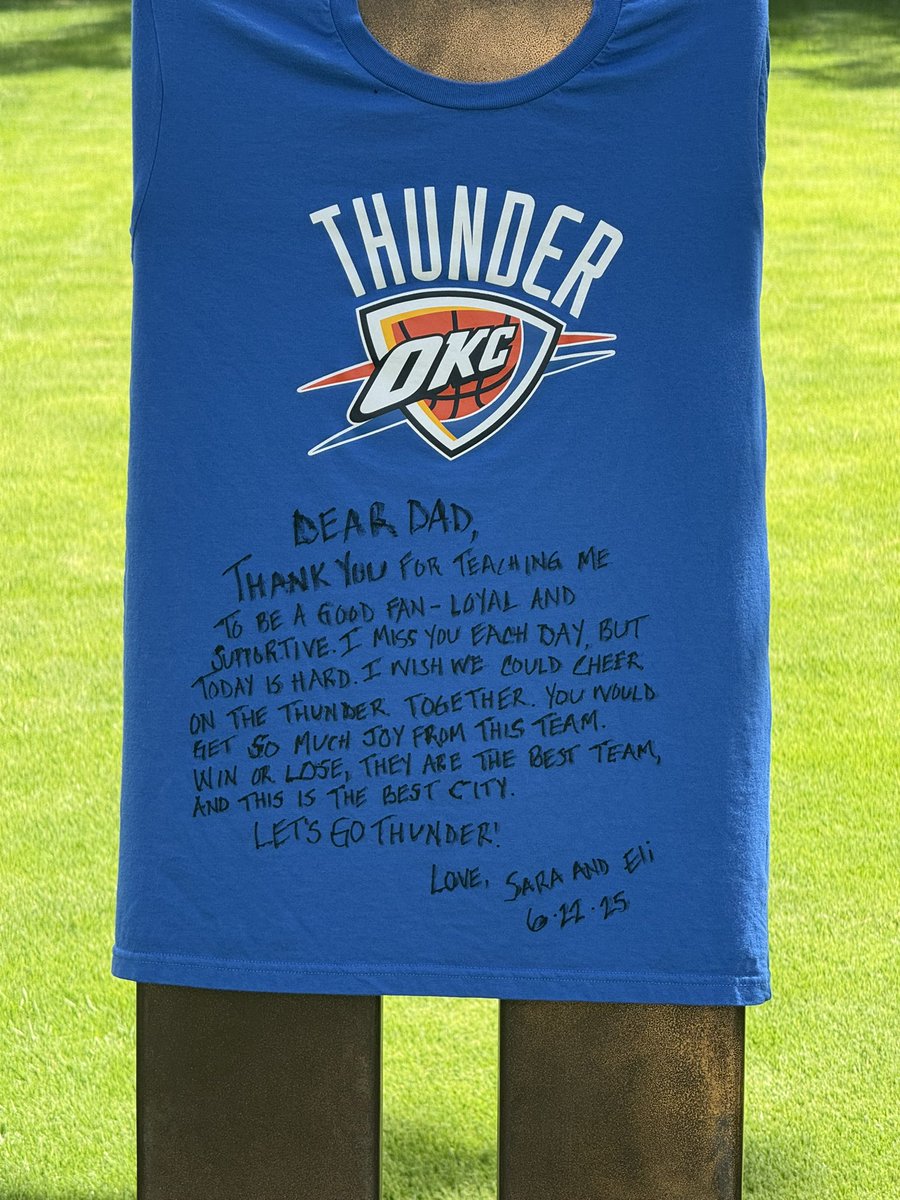 THUNDER
OKC
DEAR DAD,
THANK YOU FOR TEACHING ME
TO BE A GOOD FAN - LOYAL AND
SUPPORTIVE. I MISS YOU EACH DAY, BUT
TODAY IS HARD. I WISH WE COULD CHEER
ON THE THUNDER TOGETHER. YOU WOULD
GET SO MUCH JOY FROM THIS TEAM.
WIN OR LOSE, THEY ARE THE BEST TEAM,
AND THIS IS THE BEST CITY.
LET'S GO THUNDER!
LOVE, SARA AND Eli
6.22.25